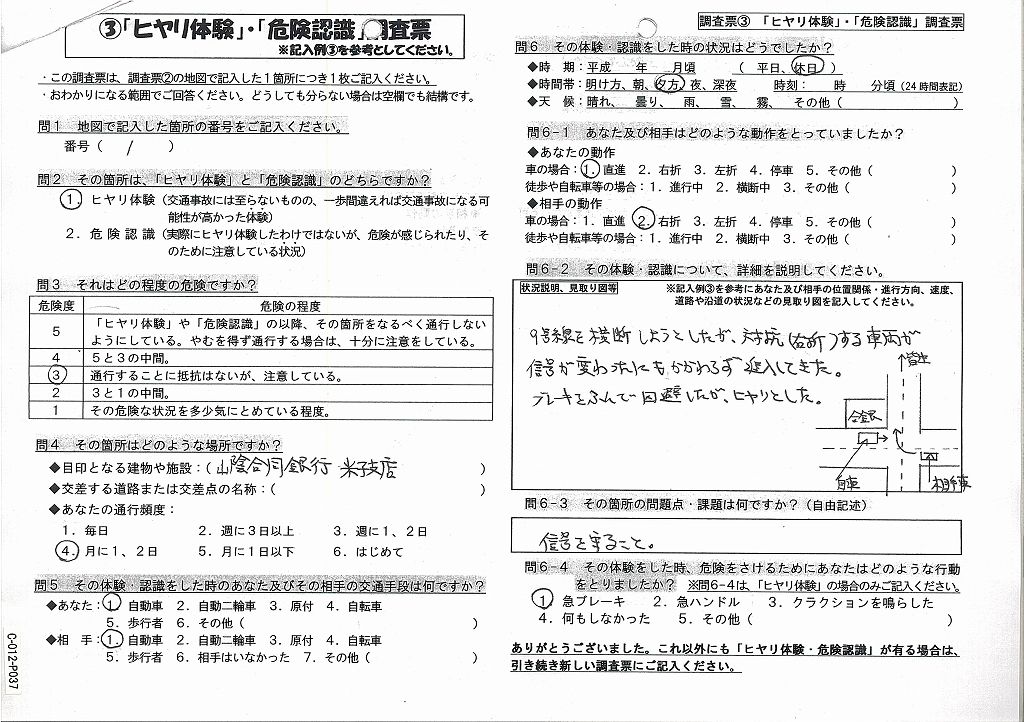 ③「ヒヤリ体験」・「危険認識」調査票
※記入例③を参考としてください。
・この調査票は、調査票②の地図で記入した1箇所につき1枚ご記入ください。
・おわかりになる範囲でご回答ください。どうしても分らない場合は空欄でも結構です。
問1 地図で記入した箇所の番号をご記入ください。
番号（ 1 ）
問2 その箇所は、「ヒヤリ体験」と「危険認識」のどちらですか？
1. ヒヤリ体験（交通事故には至らないものの、一歩間違えれば交通事故になる可
能性が高かった体験）
2. 危険認識（実際にヒヤリ体験したわけではないが、危険が感じられたり、そ
のために注意している状況）
問3 それはどの程度の危険ですか？
危険度 危険の程度
5 「ヒヤリ体験」や「危険認識」の以降、その箇所をなるべく通行しない
ようにしている。やむを得ず通行する場合は、十分に注意をしている。
4 5と3の中間。
3 通行することに抵抗はないが、注意している。
2 3と1の中間。
1 その危険な状況を多少気にとめている程度。
問4 その箇所はどのような場所ですか？
◆目印となる建物や施設：（山陰合同銀行 米子支店 ）
◆交差する道路または交差点の名称：（ ）
◆あなたの通行頻度：
1. 毎日 2. 週に3日以上 3. 週に1、2日
4. 月に1、2日 5. 月に1日以下 6. はじめて
問5 その体験・認識をした時のあなた及びその相手の交通手段は何ですか？
◆あなた：1. 自動車 2. 自動二輪車 3. 原付 4. 自転車
5. 歩行者 6. その他（ ）
◆相 手：1. 自動車 2. 自動二輪車 3. 原付 4. 自転車
5. 歩行者 6. 相手はいなかった 7. その他（ ）
C-012-P037
調査票③ 「ヒヤリ体験」・「危険認識」調査票
問6 その体験・認識をした時の状況はどうでしたか？
◆時 期：平成 年 月頃 （ 平日、休日 ）
◆時間帯：明け方、朝、夕方、夜、深夜 時刻： 時 分頃（24時間表記）
◆天 候：晴れ、 曇り、 雨、 雪、 霧、 その他（ ）
問6-1 あなた及び相手はどのような動作をとっていましたか？
◆あなたの動作
車の場合：1. 直進 2. 右折 3. 左折 4. 停車 5. その他（ ）
徒歩や自転車等の場合：1. 進行中 2. 横断中 3. その他（ ）
◆相手の動作
車の場合：1. 直進 2. 右折 3. 左折 4. 停車 5. その他（ ）
徒歩や自転車等の場合：1. 進行中 2. 横断中 3. その他（ ）
問6-2 その体験・認識について、詳細を説明してください。
状況説明、見取り図等 ※記入例③を参考にあなた及び相手の位置関係・進行方向、速度、
道路や沿道の状況などの見取り図を記入してください。
9号線を横断しようとしたが、対抗（右折）する車両が
信号が変わったにもかかわらず進入してきた。
ブレーキをふんで回避したが、ヒヤリとした。
合銀
自車
相手車
問6-3 その箇所の問題点・課題は何ですか？（自由記述）
信号を守ること。
問6-4 その体験をした時、危険をさけるためにあなたはどのような行動
をとりましたか？ ※問6-4は、「ヒヤリ体験」の場合のみご記入ください。
1. 急ブレーキ 2. 急ハンドル 3. クラクションを鳴らした
4. 何もしなかった 5. その他（ ）
ありがとうございました。これ以外にも「ヒヤリ体験・危険認識」が有る場合は、
引き続き新しい調査票にご記入ください。